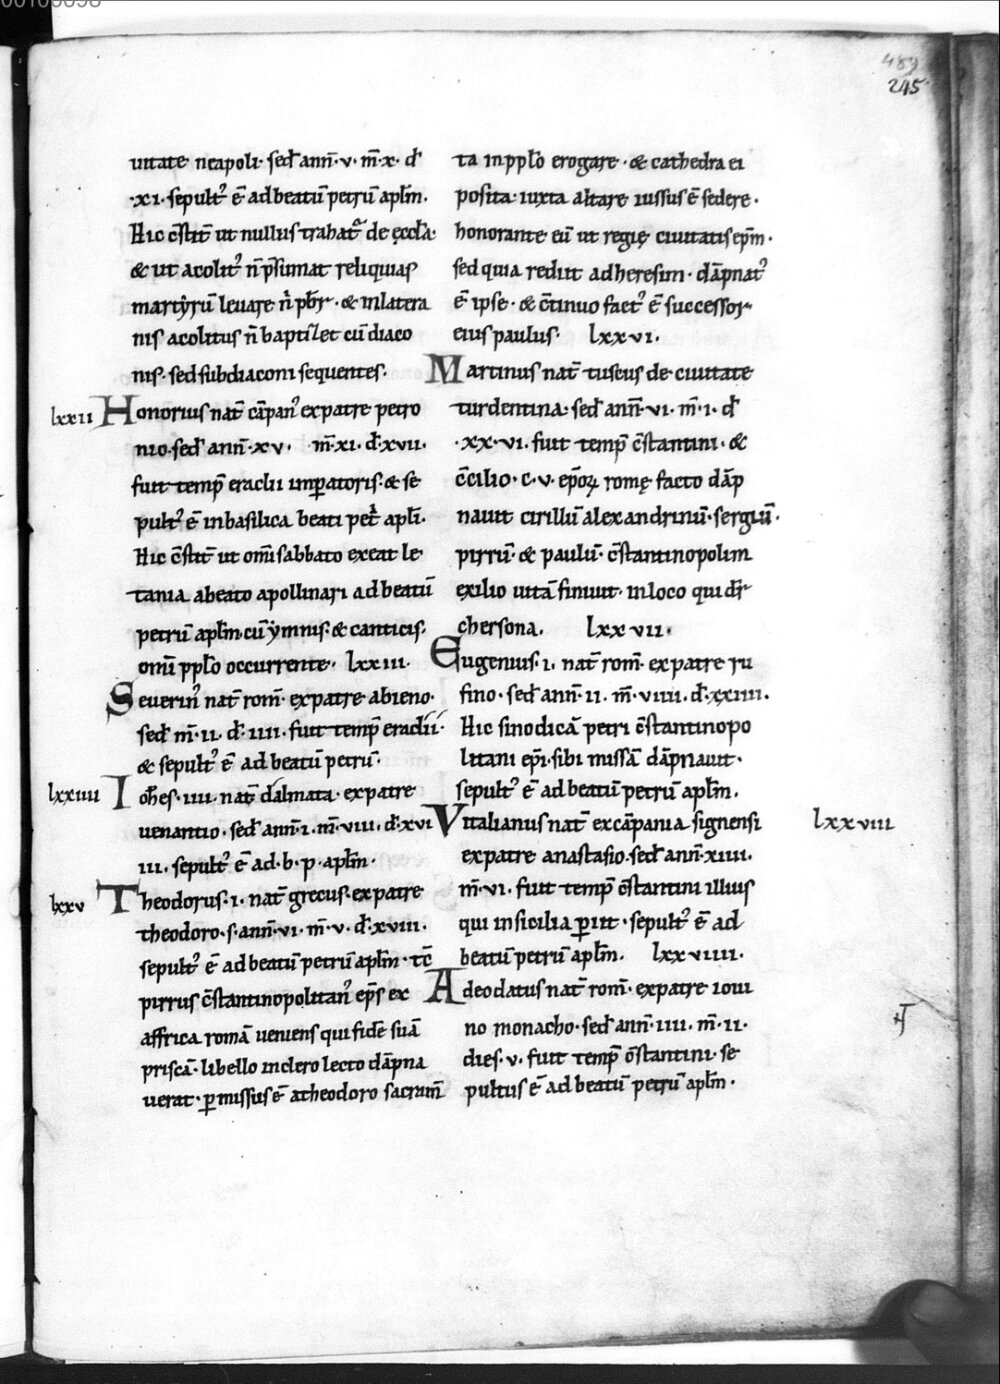 489
245
uitate neapoli· sed̅ ann̅·v· m̅·x· d̅
·xi· sepult᷒ ē ad beatū petrū apl̅m·
Hic c̅stit̅ ut nullus trahat᷒ de eccl̅a·
& ut acolit᷒ n̅ p̅sumat reliquias
martyrū leuare n̅ pb̅r· & in latera
nis acolitus n̅ baptizet cū diaco
nis· sed subdiaconi sequentes·
lxxii Honorius nat̅ cāpan᷒ ex patre petro
nio· sed̅ ann̅·xv· m̅·xi· d̅·xvii·
fuit temp̅ eraclii imꝑatoris· & se
pult᷒ ē in basilica beati pet̅ apl̅i·
Hic c̅stit̅ ut om̅i sabbato exeat le
tania a beato apollinari ad beatū
petrū apl̅m· cū ymnis· & canticis·
omī ppl̅o occurrente· lxxiii·
Seuerin᷒ nat̅ rom̅· ex patre abieno·
sed̅ m̅·ii· d̅·iiii· fuit temp̅ eraclii·
& sepult᷒ ē ad beatū petrū·
lxxiiii Ioh̅es·iiii· nat̅ dalmata· ex patre
uenantio· sed̅ ann̅·i· m̅·viii· d̅·xvi
iii· sepult᷒ ē ad·b·p·apl̅m·
lxxv Theodorus·i· nat̅ grecus· ex patre
theodoro·s·ann̅·vi· m̅·v· d̅·xviii·
sepult᷒ ē ad beatū petrū apl̅m· tc̅
pirrus c̅stantinopolitan᷒ ep̅s ex
affrica romā ueniens qui fidē suā
priscā· libello in clero lecto dāpna
uerat· ꝑmissus ē a theodoro sacram̅
ta in ppl̅o erogare· & cathedra ei
posita· iuxta altare iussus ē sedere·
honorante eū ut regię ciuitatis ep̅m·
sed quia rediit ad heresim· dāpnat᷒
ē ipse· & c̅tinuo fact᷒ ē successor
eius paulus· lxxvi·
Martinus nat̅ tuscus de ciuitate
turdentina· sed̅ ann̅·vi· m̅·i· d̅
·xx·vi· fuit temp̅ c̅stantini· &
c̅cilio·c·v· ep̅oꝝ romę facto dāp
nauit cirillū alexandrinū· sergiū·
pirrū· & paulū· c̅stantinopolim
exilio uitā finiuit· in loco qui dr̅
chersona. lxxvii·
Eugenius·i· nat̅ rom̅· ex patre ru
fino· sed̅ ann̅·ii· m̅·viiii· d̅·xxiiii·
Hic sinodicā petri c̅stantinopo
litani ep̅i· sibi missā dāpnauit·
sepult᷒ ē ad beatū petrū apl̅m.
Vitalianus nat̅ ex cāpania signensi lxxviii
ex patre anastasio· sed̅ ann̅·xiiii·
m̅·vi· fuit temp̅ c̅stantini illius
qui in sicilia ꝑiit· sepult᷒ ē ad
beatū petrū apl̅m. lxxviiii·
Adeodatus nat̅ rom̅· ex patre ioui
no monacho· sed̅ ann̅·iiii· m̅·ii·
dies·v· fuit temp̅ c̅stantini· se
pultus ē ad beatū petrū apl̅m·